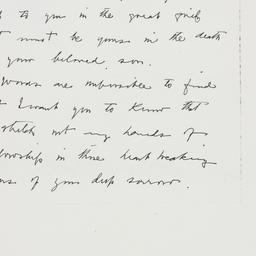 to you in the great grief
must be yours in the death
your beloved son.
Words are impossible to find
I want you to know that
stretch out my hands of
in these heart breaking
of your deep sorrow.